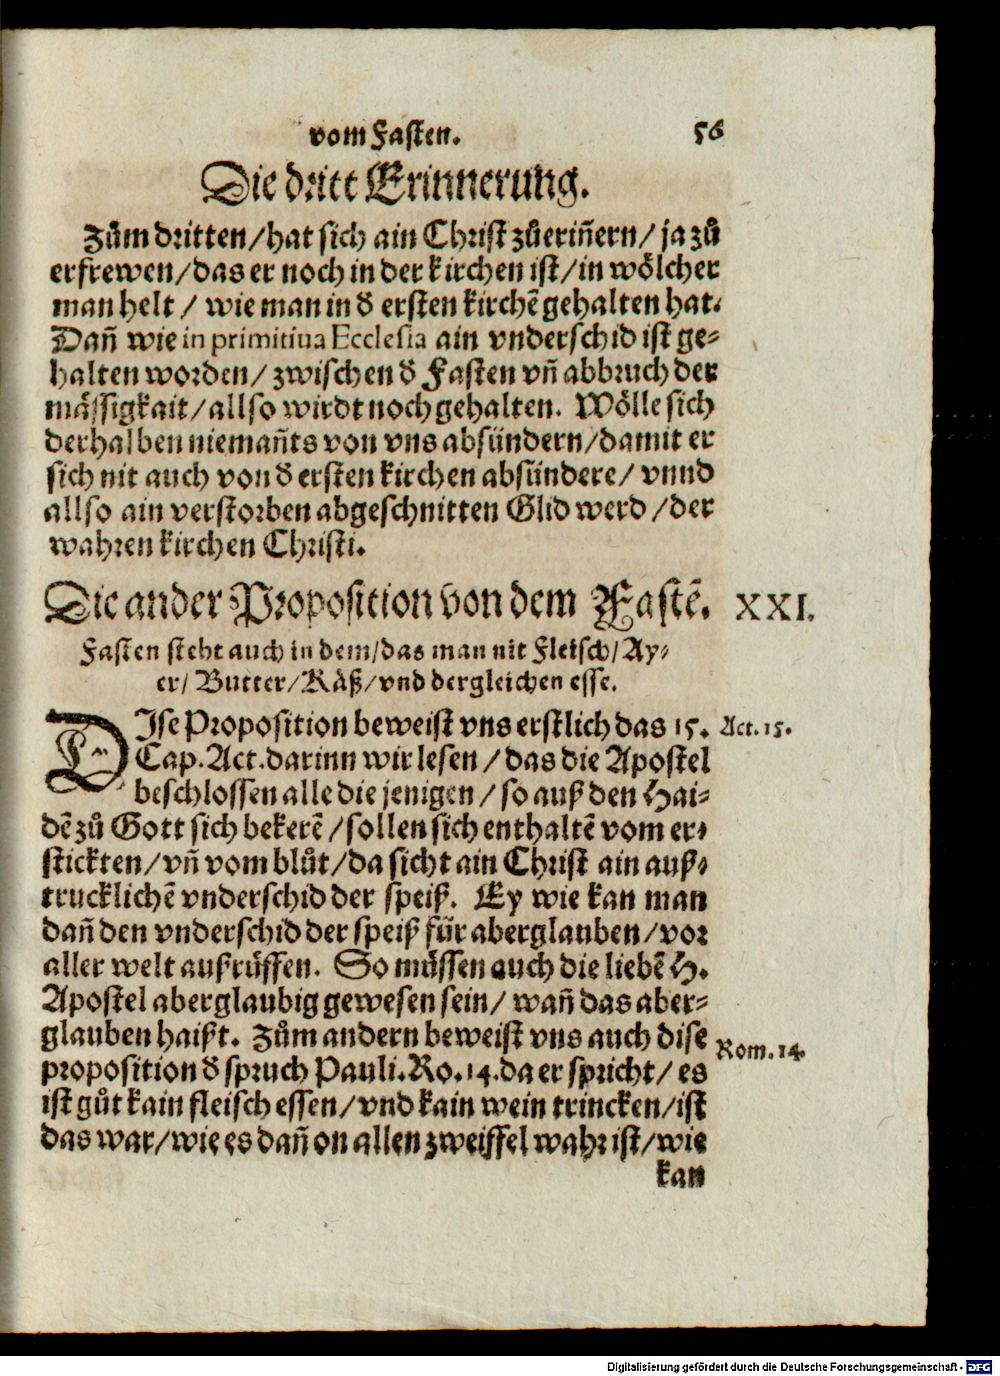 vom Fasten. 56
Die dritt Erinnerung.
Zům dritten/hat sich ain Christ zůeriñern/ ja zů
erfrewen/das er noch in der kirchen ist/in wölcher
man helt / wie man in d̕ ersten kirchẽ gehalten hat.
Dañ wie in primitiua Ecclesia ain vnderschid ist ge-
halten worden/ zwischen d̕ Fasten vñ abbruch der
mässigkait/allso wirdt noch gehalten. Wölle sich
derhalben niemañts von vns absündern/damit er
sich nit auch von d̕ ersten kirchen absündere/ vnnd
allso ain verstorben abgeschnitten Glid werd /der
wahren kirchen Christi.
Die ander Proposition von dem Fastẽ. XXI.
Fasten steht auch in dem/das man nit Fleisch/Ay-
er/ Butter/Käß/vnd dergleichen esse.
DIse Proposition beweist vns erstlich das 15. Act. 15.
Cap. Act. darinn wir lesen /das die Apostel
beschlossen alle die jenigen / so auß den Hai-
dẽ zů Gott sich bekerẽ /sollen sich enthaltẽ vom er-
stickten/vñ vom blůt/da sicht ain Christ ain auß-
trucklichẽ vnderschid der speiß. Ey wie kan man
dañ den vnderschid der speiß für aberglauben/vor
aller welt außrůffen. So müssen auch die liebẽ H.
Apostel aberglaubig gewesen sein/ wañ das aber-
glauben haißt. Zům andern beweist vns auch dise
proposition d̕ spruch Pauli. Ro. 14. da er spricht/ es Rom. 14.
ist gůt kain fleisch essen/vnd kain wein trincken/ist
das war/wie es dañ on allen zweiffel wahr ist/wie
kan
Digitalisierung gefördert durch die Deutsche Forschungsgemeinschaft - DFG